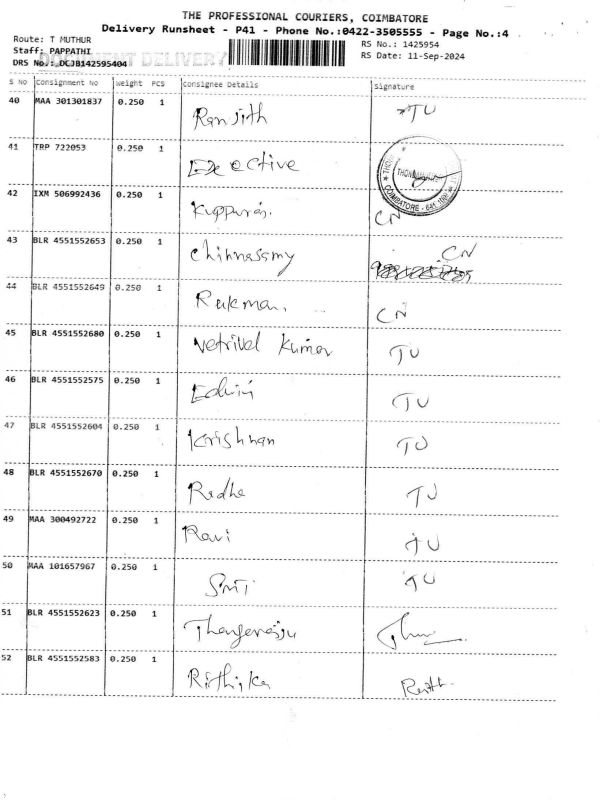 THE PROFESSIONAL COURIERS, COIMBATORE
Delivery Runsheet - P41 - Phone No.:0422-3505555 - Page No.:4
Route: T MUTHUR
RS No.: 1425954
Staff: PAPPATHI
RS Date: 11-Sep-2024
DOCUMENT DELIVERY
DRS No.: DCJB142595404
S No Consignment No Weight PCS Consignee Details Signature
40 MAA 301301837 0.250 1 Ranjith TU
41 TRP 722053 0.250 1 Exective
COIMBATORE - 641
42 IXM 506992436 0.250 1 CN
43 BLR 4551552653 0.250 1 Chinnasamy CN
44 BLR 4551552649 0.250 1 Rukman. CN
45 BLR 4551552680 0.250 1 Vetrivel Kumar TU
46 BLR 4551552575 0.250 1 Edwin TU
47 BLR 4551552604 0.250 1 Krishnan TU
48 BLR 4551552670 0.250 1 Radha TU
49 MAA 300492722 0.250 1 Ravi TU
50 MAA 101657967 0.250 1 TU
51 BLR 4551552623 0.250 1 Thangaraju
52 BLR 4551552583 0.250 1 Rithika